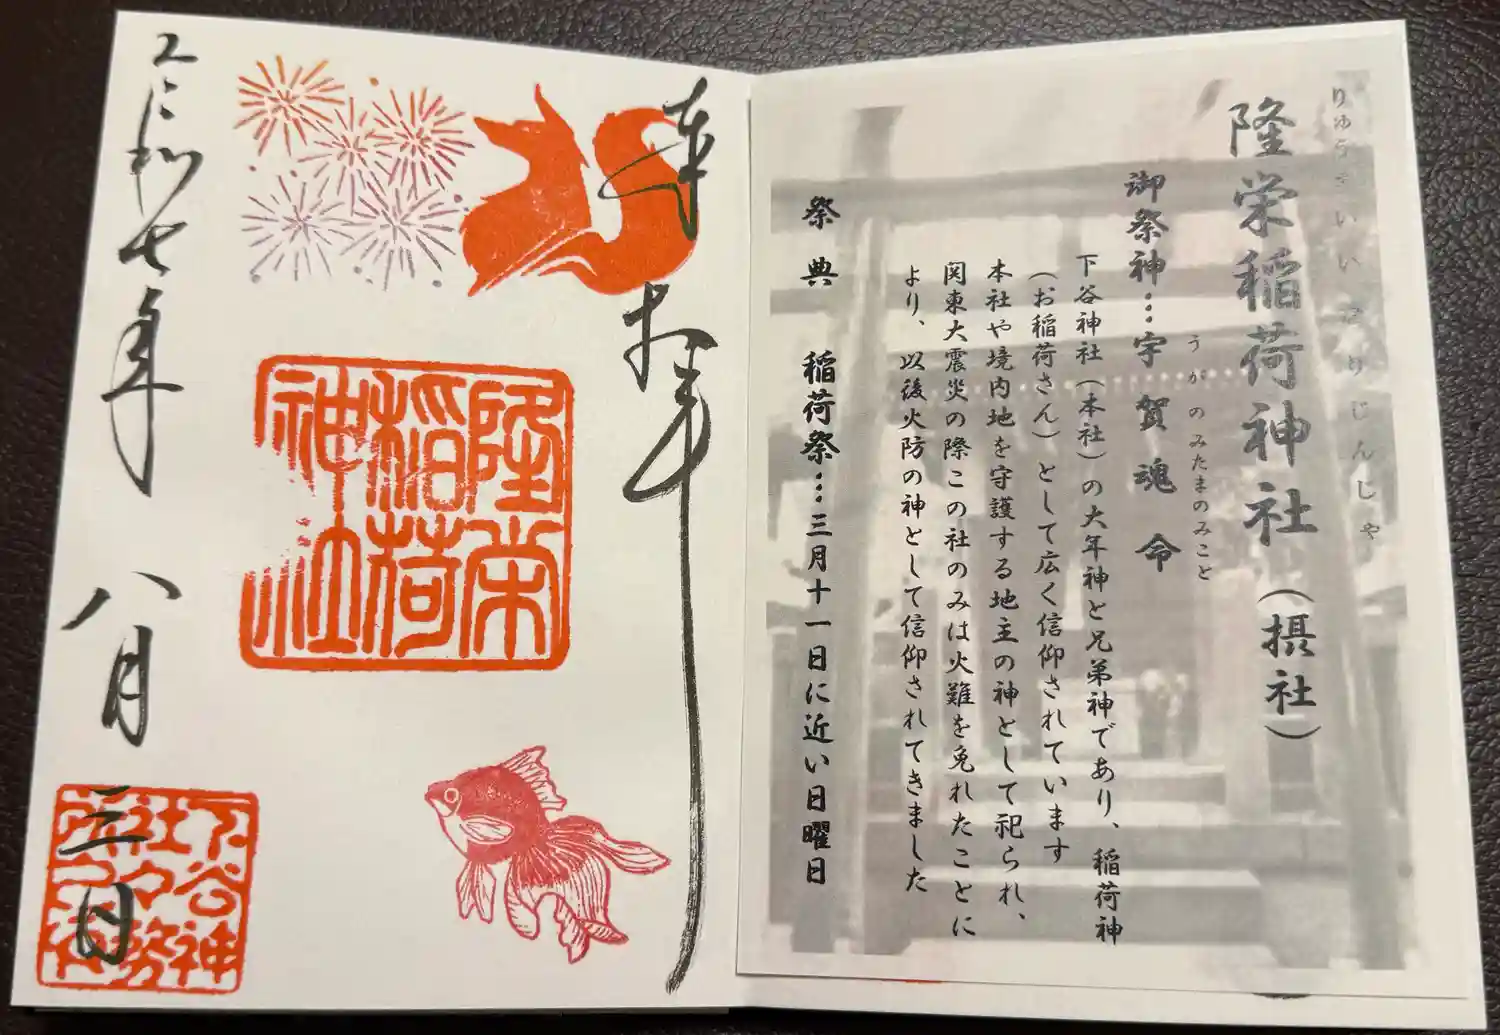 りゅうえいいなりじんじゃ
隆栄稲荷神社（摂社）
うがのみたまのみこと
御祭神…宇賀魂命
下谷神社（本社）の大年神と兄弟神であり、稲荷神
（お稲荷さん）として広く信仰されています
本社や境内地を守護する地主の神として祀られ、
関東大震災の際この社のみは火難を免れたことに
より、以後火防の神として信仰されてきました
祭典 稲荷祭…三月十一日に近い日曜日
奉拝
隆栄
稲荷
神社
令和七年 八月 三日
下谷神
社々務
所之